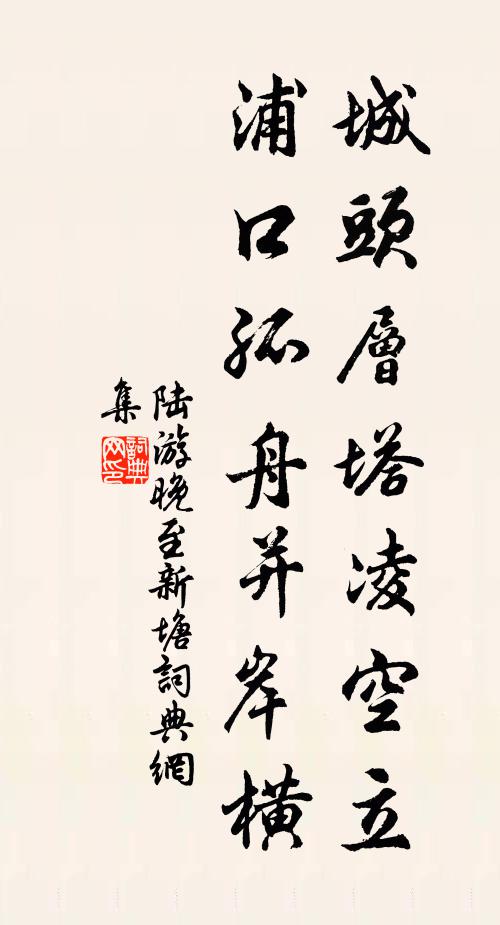 城頭層塔凌空立
浦口孤舟并岸橫
陆游晚至新塘詞典網
集
詞典
网印